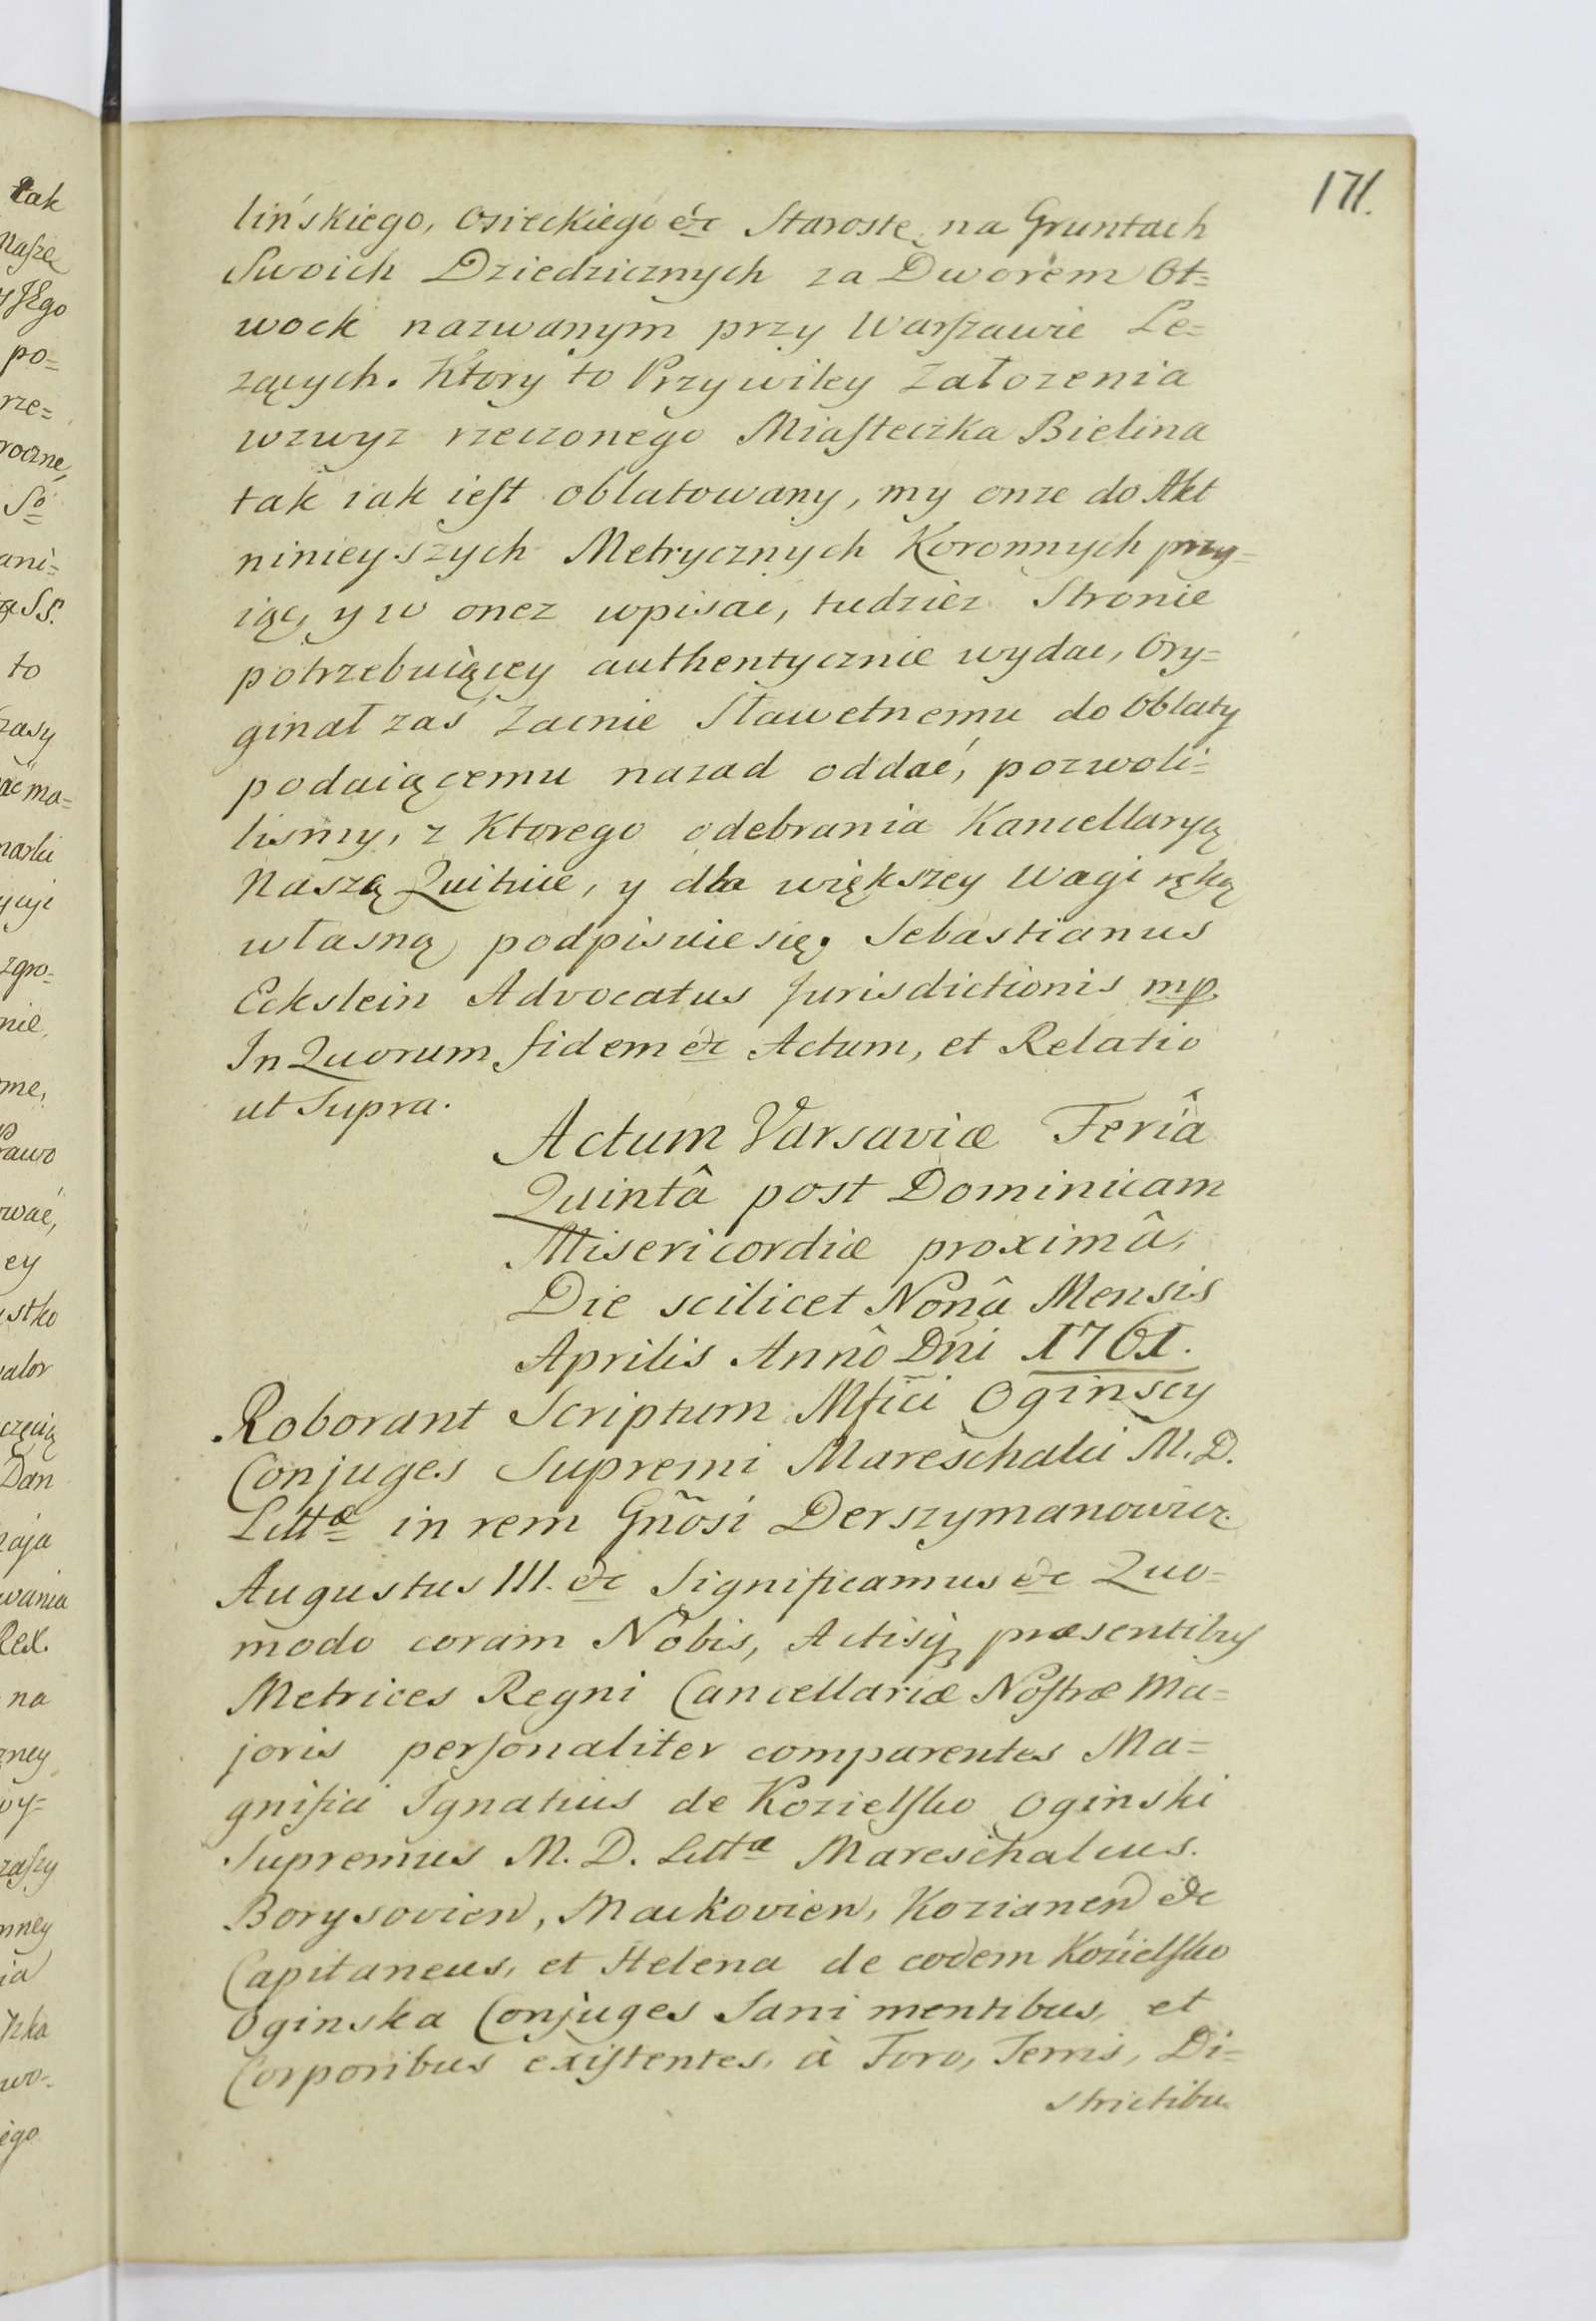 171.
lińskiego, Osieckiego &c Starostę na Gruntach
Swoich Dziedzicznych za Dworem Ot=
wock nazwanym przy Warſzawie Le=
zących. Ktory to Przywiley Załozenia
wzwyz rzeczonego Miaſteczka Bielina
tak iak ieſt oblatowany, my onze do Akt
ninieyszych Metrycznych Koronnych przy=
iąc, y w onez wpisac, tudziez Stronie
potrzebuiącey authentycznie wydac, Ory=
ginał zaś Zacnie Sławetnemu do Oblaty
podaiącemu nazad oddać, pozwoli=
lismy, z Ktorego odebrania Kancellaryą
Naszą Quituie, y dla większey Wagi ręką
własną podpisuie się. Sebastianus
Eckstein Advocatus Jurisdictionis mp.
In Quorum fidem &c Actum, et Relatio
ut Supra.
Actum Varsaviæ Feriâ
Quintâ post Dominicam
Misericordiæ proximâ,
Die scilicet Nonâ Mensis
Aprilis Annô Dni 1761.
Roborant Scriptum Mfici Oginscy
Conjuges Supremi Mareschalci M. D.
Littæ in rem Gnosi Derszymanowicz.
Augustus III. &c Significamus &c Quo=
modo coram Nobis, Actisq præsentibus
Metrices Regni Cancellariæ Noſtræ Ma=
joris perſonaliter comparentes Ma=
gnifici Ignatius de Kozielſko Oginski
Supremus M. D. Littæ Mareschalcus.
Borysovien, Mackovien, Kozianen &c
Capitaneus, et Helena de eodem Kozielſko
Oginska Conjuges Sani mentibus, et
Corporibus exiſtentes, à Foro, Terris, Di=
strictibu